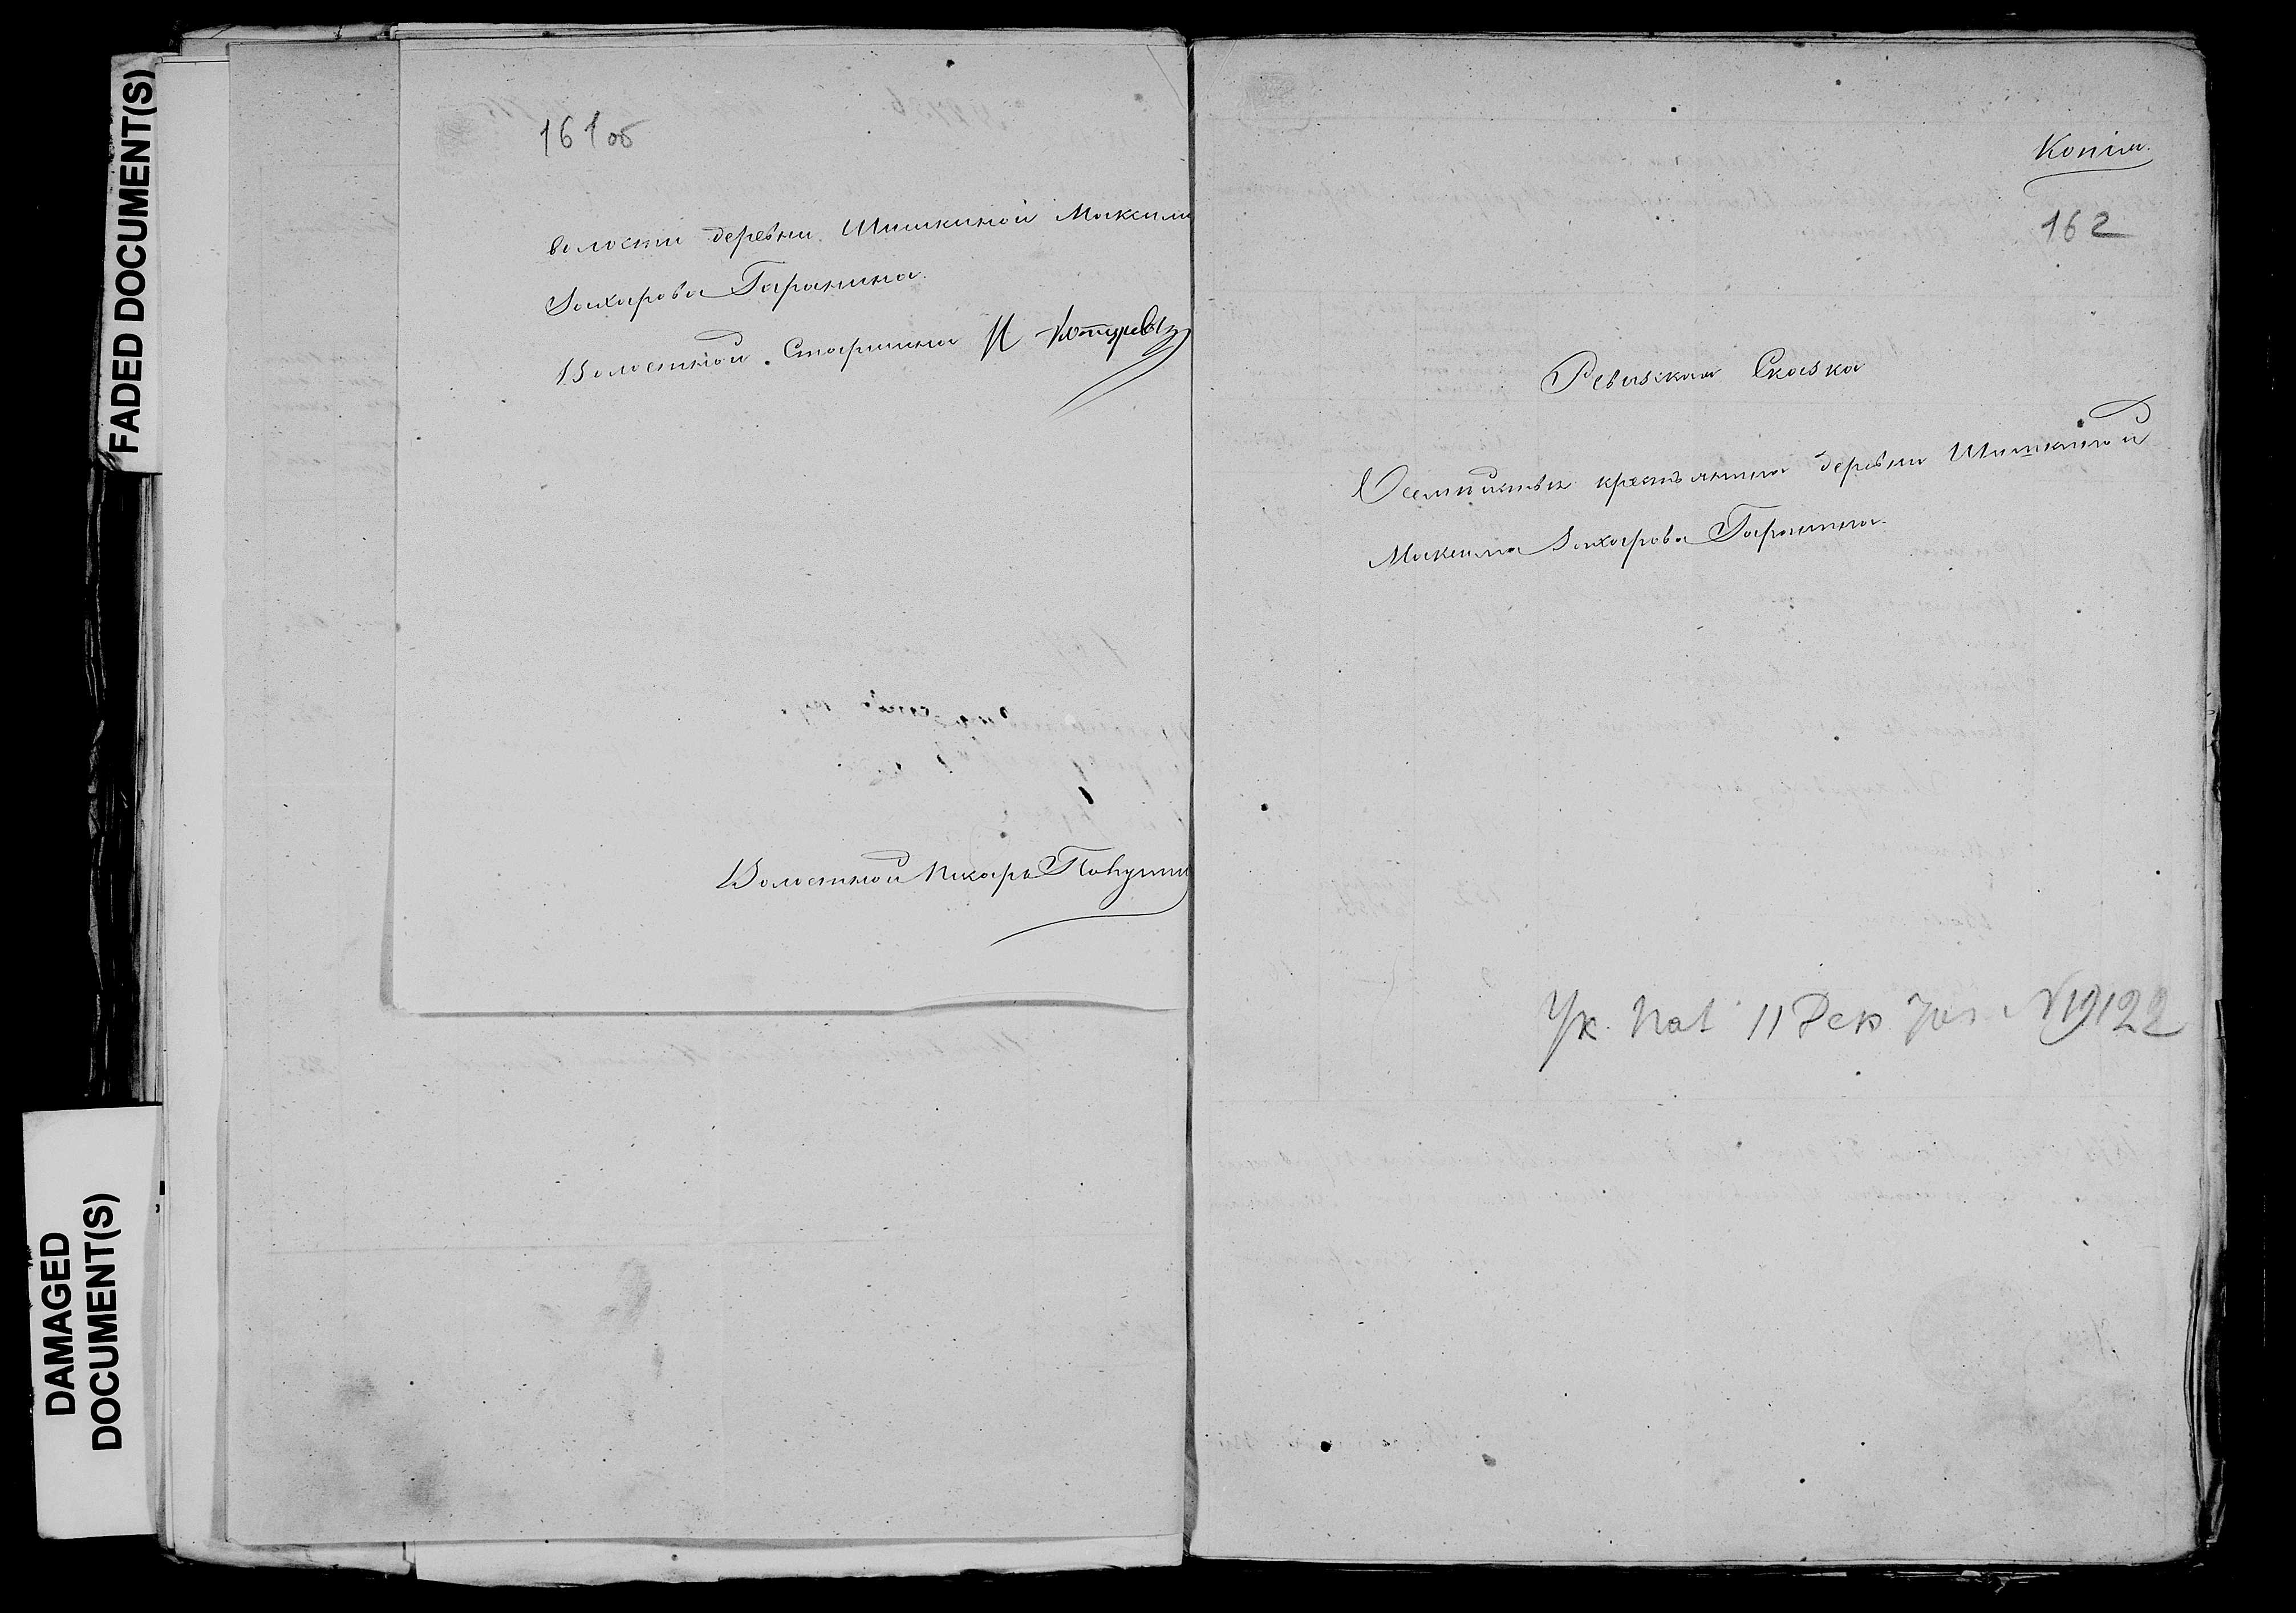 FADED DOCUMENT(S)
DAMAGED
DOCUMENT(S)
161об
волости деревни Шишкиной Максима
Захарова Гаранина.
Волостной Старшина И
Волостной Писарь
Копія.
162
Ревизская Сказка
О семействѣ крестьянина деревни Шишкиной
Максима Захарова Гаранина.
Ук. Пал. 11 Дек 70г. №19122